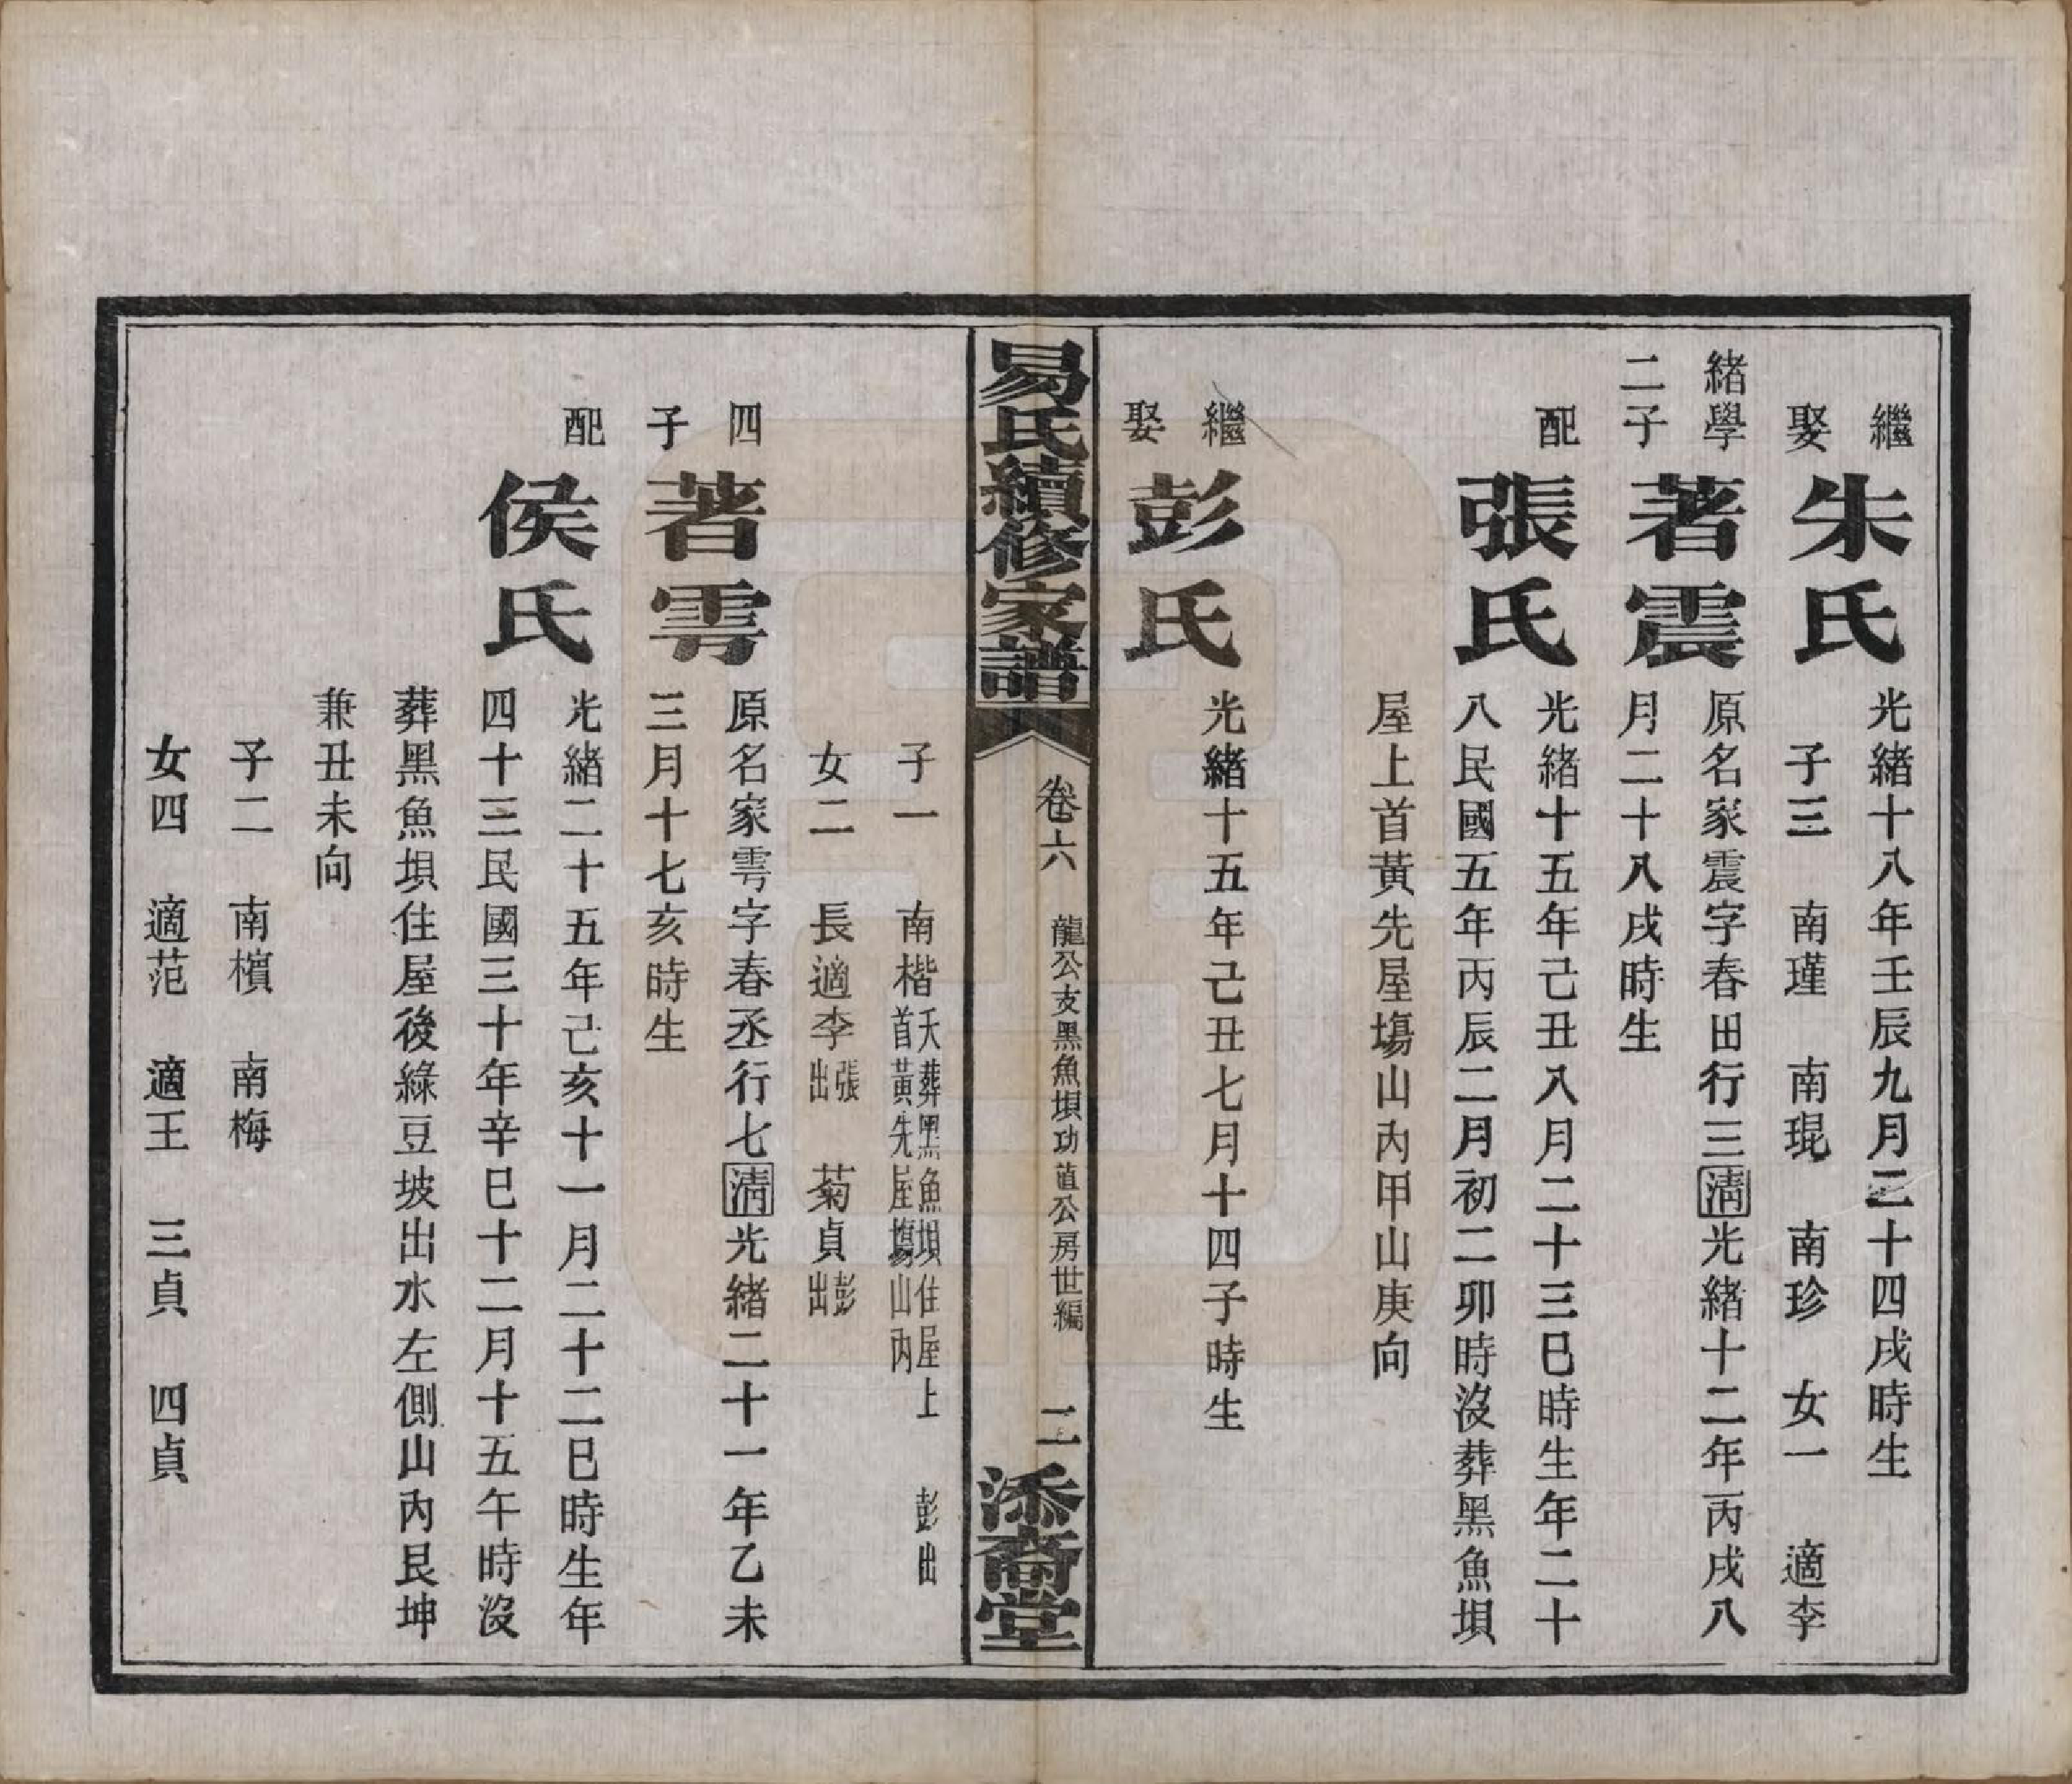 繼娶朱氏光緒十八年壬辰九月二十四戌時生
子三 南瑾 南琨 南珍 女一 適李
緒學二子著震原名家震字春田行三清光緒十二年丙戌八
月二十八戌時生
配張氏光緒十五年己丑八月二十三巳時生年二十
八民國五年丙辰二月初二卯時沒葬黑魚垻
屋上首黃先屋塲山內甲山庚向
繼娶彭氏光緒十五年己丑七月十四子時生
易氏續修家譜 卷六 龍公支黑魚垻功 公房世編 二 添裔堂
子一 南楷 夭葬黑魚垻住屋上首黃先屋塲山內 彭出
女二 長適李 張出 菊貞 彭出
四子著雩原名家雩字春丞行七清光緒二十一年乙未
三月十七亥時生
配侯氏光緒二十五年己亥十一月二十二巳時生年
四十三民國三十年辛巳十二月十五午時沒
葬黑魚垻住屋後綠豆坡出水左側山內艮坤
兼丑未向
子二 南檳 南梅
女四 適范 適王 三貞 四貞